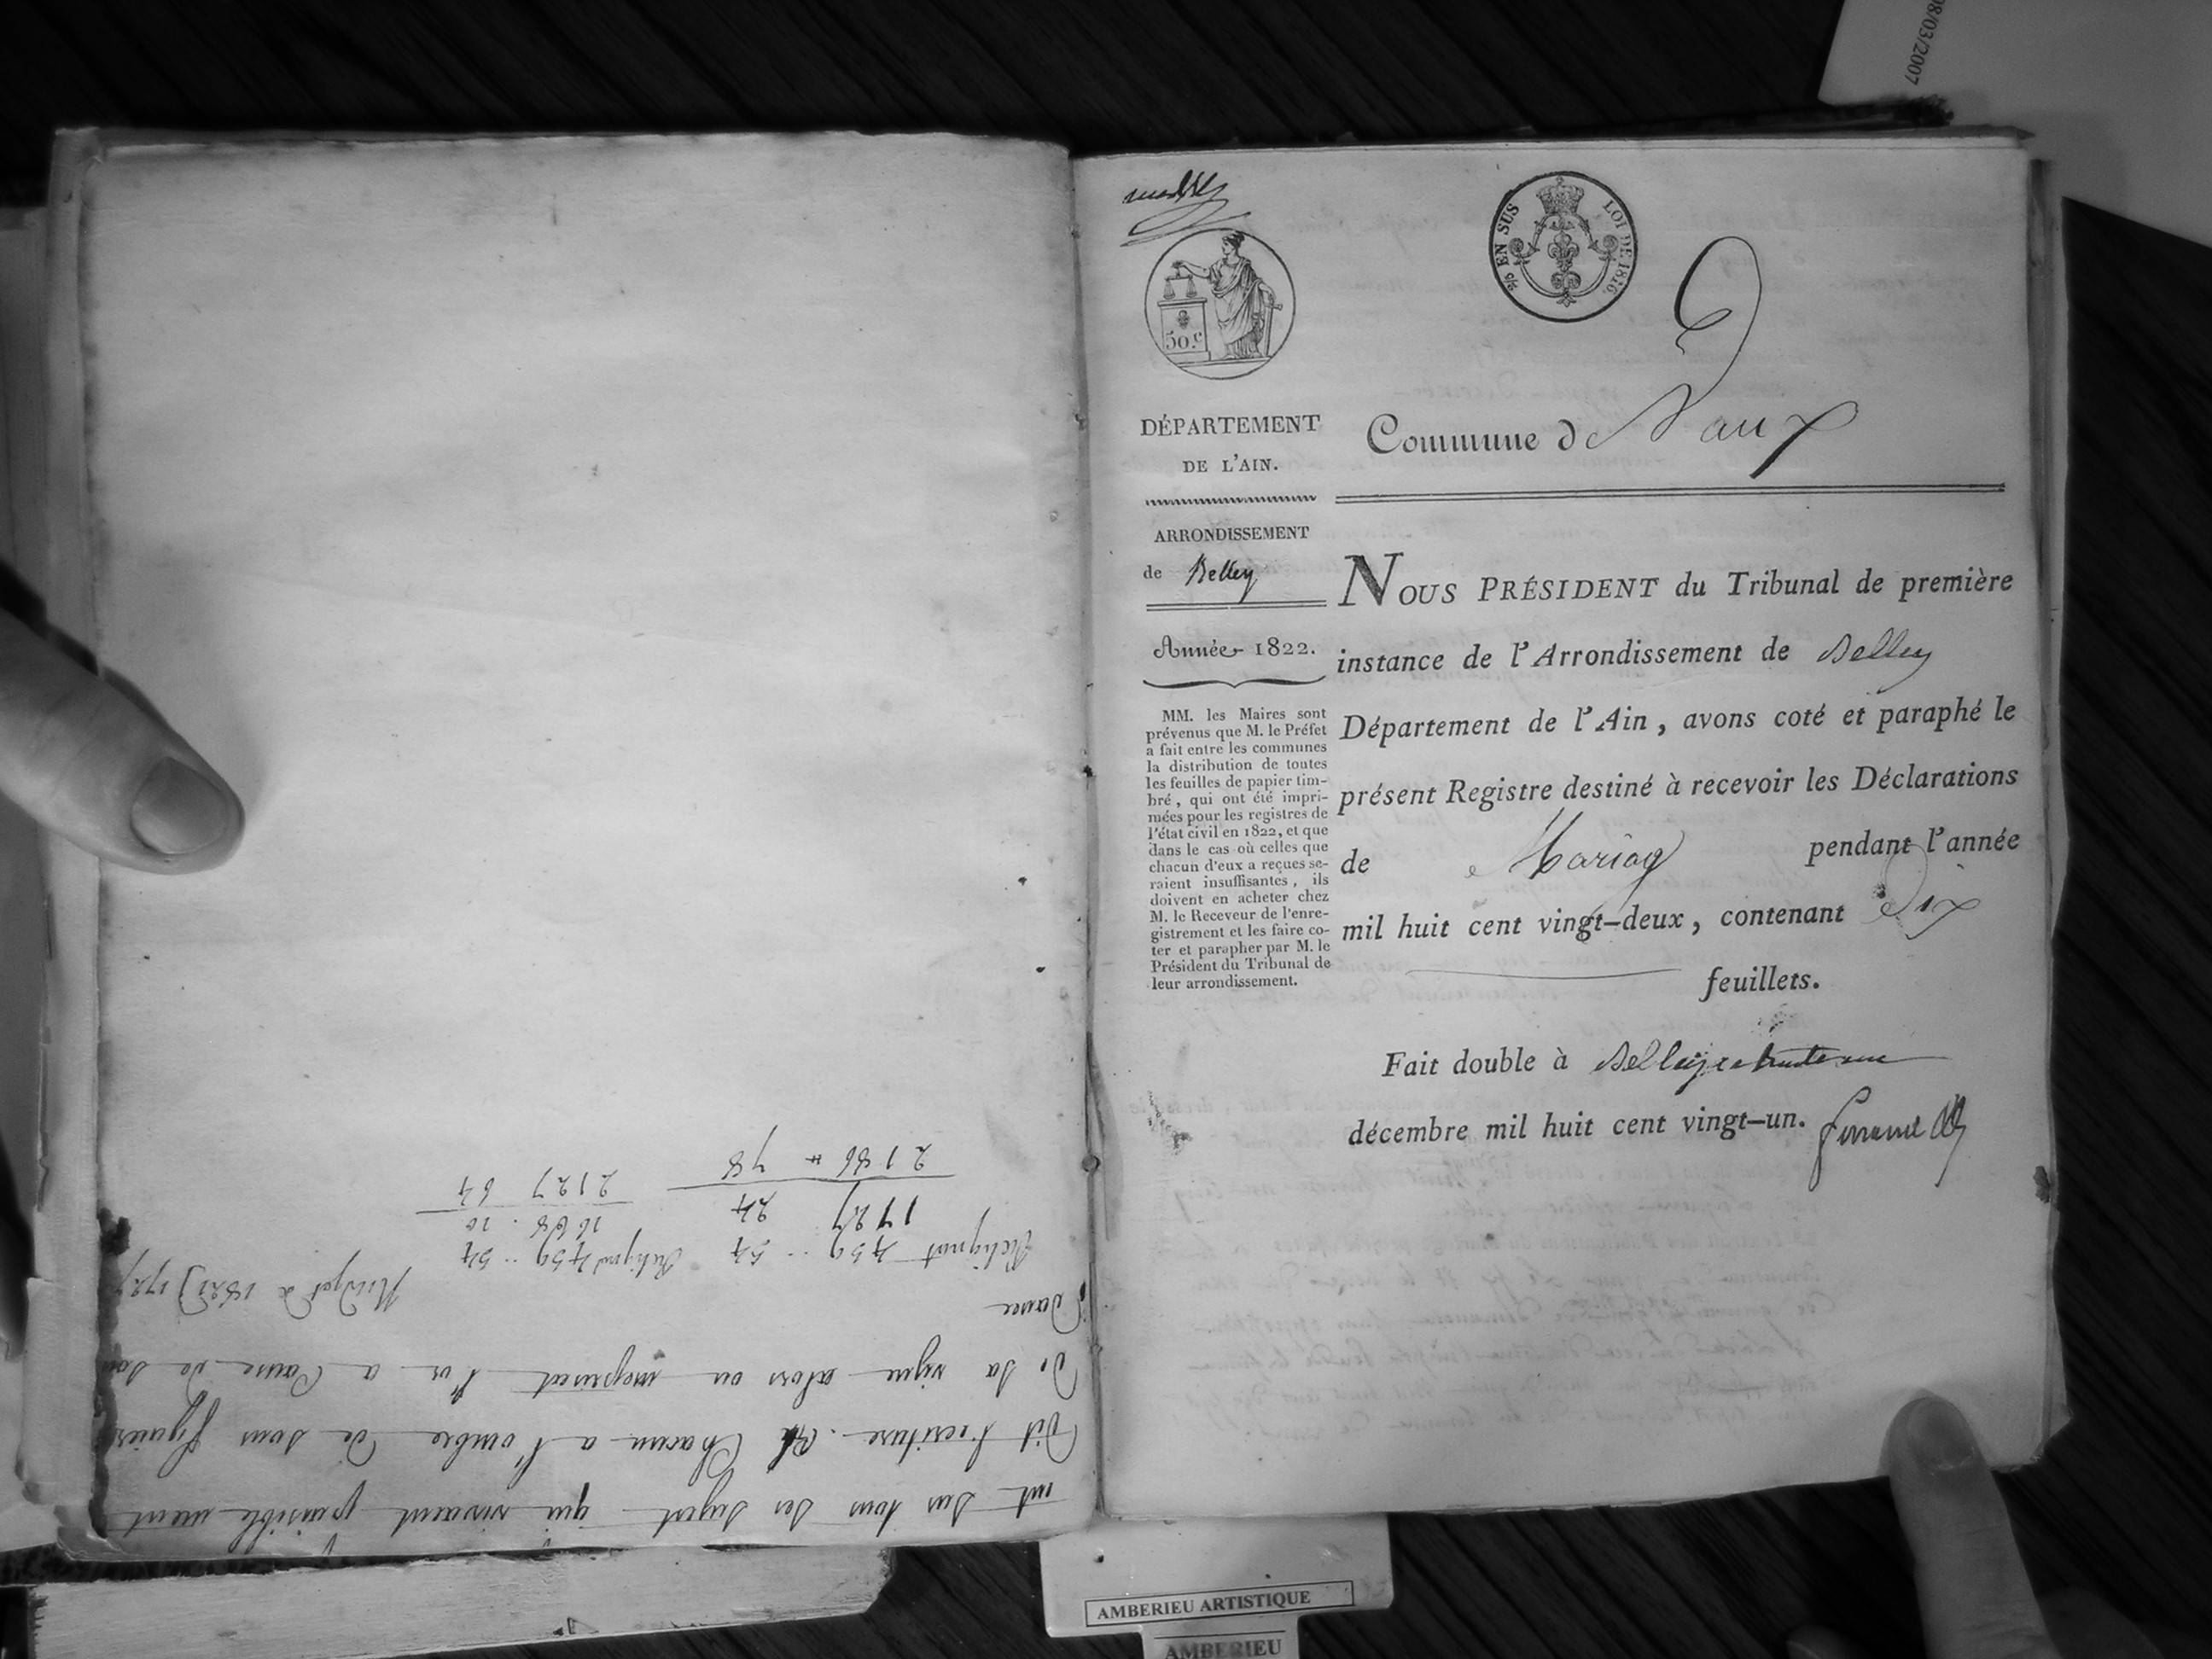 08/03/2007
2/10 EN SUS LOI DE 1816.
50.c
DÉPARTEMENT
DE L'AIN.
Commune de Vaux
ARRONDISSEMENT
de Belley
Année 1822.
MM. les Maires sont
prévenus que M. le Préfet
a fait entre les communes
la distribution de toutes
les feuilles de papier tim-
bré, qui ont été impri-
mées pour les registres de
l'état civil en 1822, et que
dans le cas où celles que
chacun d'eux a reçues se-
raient insuffisantes, ils
doivent en acheter chez
M. le Receveur de l'enre-
gistrement et les faire co-
ter et parapher par M. le
Président du Tribunal de
leur arrondissement.
NOUS PRÉSIDENT du Tribunal de première
instance de l'Arrondissement de Belley
Département de l'Ain, avons coté et paraphé le
présent Registre destiné à recevoir les Déclarations
de Mariag pendant l'année
mil huit cent vingt-deux, contenant Dix
feuillets.
Fait double à Belley le trente un
décembre mil huit cent vingt-un.
sur tous ses sujest qui vivaient paisible ment
dit l'ecriture. Chacun a l'ombre de sons figuier
de sa vigne alors on meprisat l'or a Cause de son
Budjet de 1821) 1727
459 .. 54 459 .. 54
1727 24 1668 . 10
2186 " 78 2127 64
AMBERIEU ARTISTIQUE
AMBERIEU